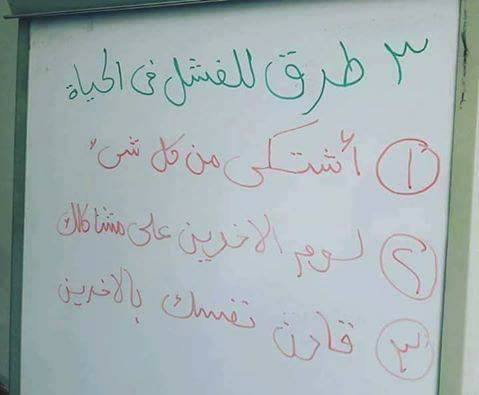 ٣ طرق للفشل فى الحياة
١ أشتكى من كل شىء
٢ لوم الاخرين على مشاكلك
٣ قارن نفسك بالاخرين